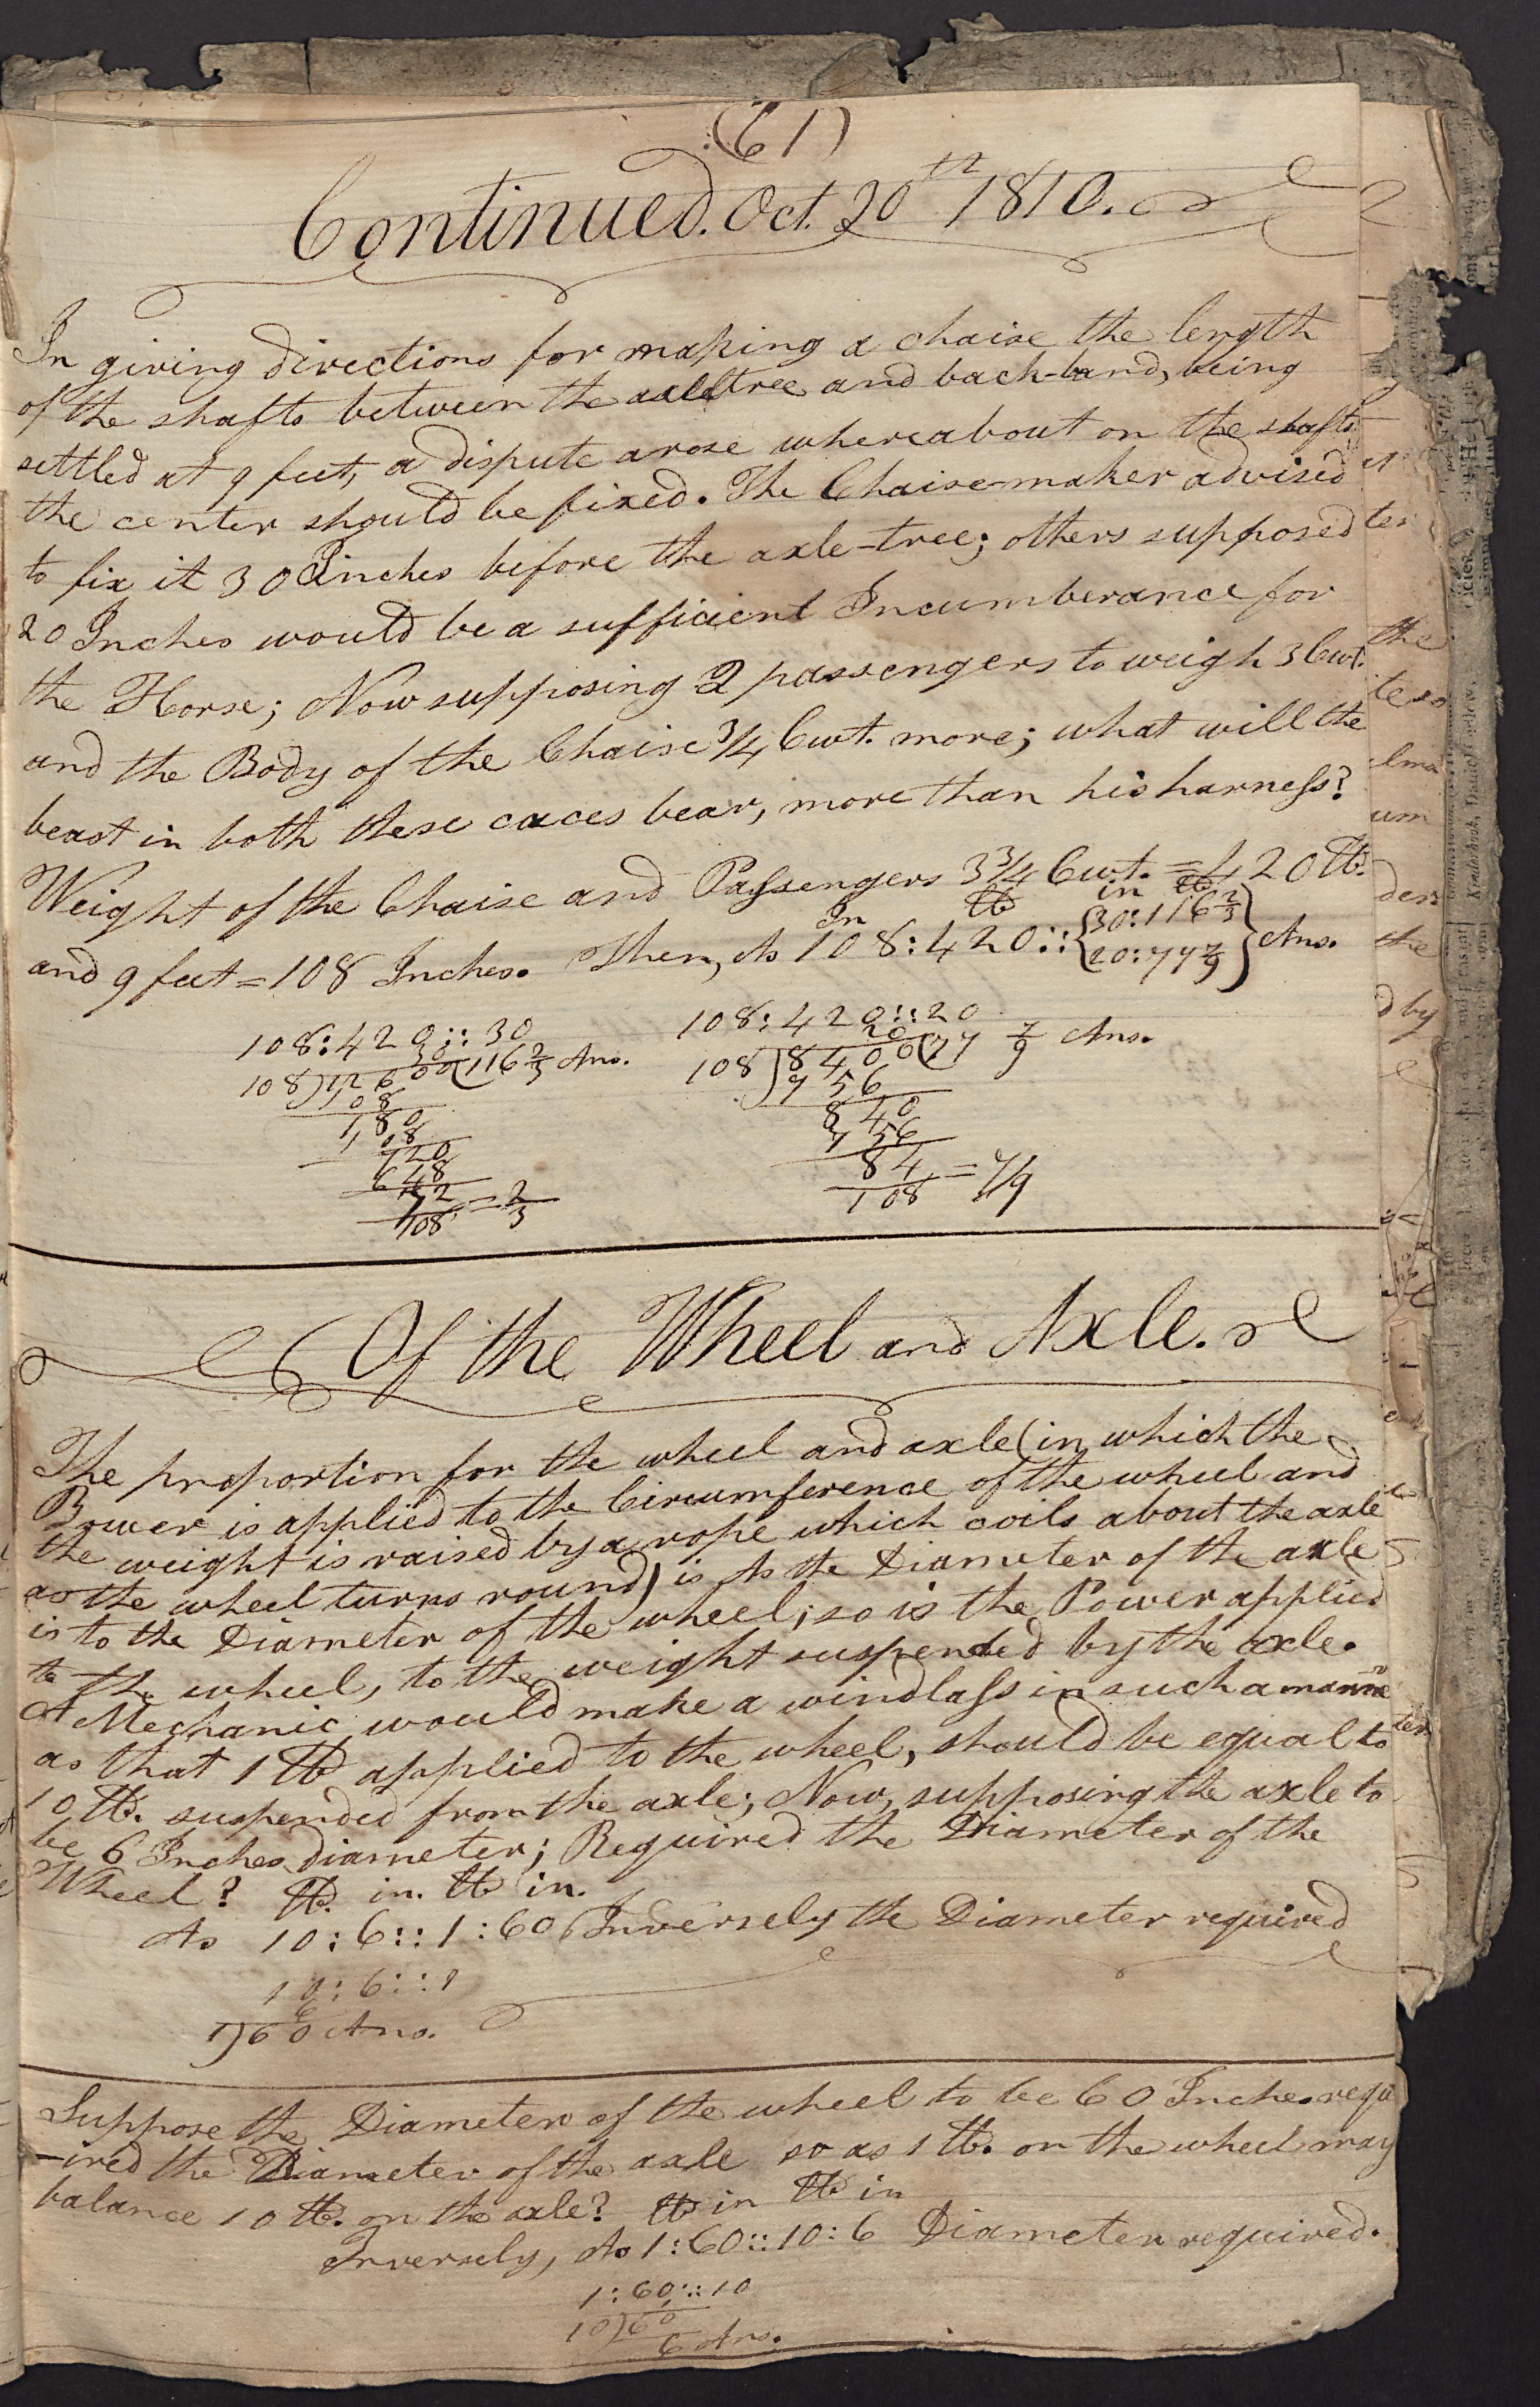 (61)
Continued. Oct. 20th 1810.
In giving directions for making a chaise the length
of the shafts between the axletree and back-band, being
settled at 9 feet, a dispute arose whereabout on the shafts
the center should be fixed. The Chaise-maker advised
to fix it 30 Inches before the axle-tree; others supposed
20 Inches would be a sufficient Incumberance for
the Horse; Now supposing 2 passengers to weigh 3 Cwt.
and the Body of the Chaise 3/4 Cwt. more; what will the
beast in both these caces bear, more than his harness?
Weight of the Chaise and Passengers 3 3/4 Cwt. = 420 lb.
In lb in lb
and 9 feet = 108 Inches. Then, As 108:420::{30:116 2/3
20:77 7/9} Ans.
108:420::30
30
108)12600(116 2/3 Ans.
108
180
108
720
648
72/108 = 2/3
108:420::20
20
108)8400(77 7/9 Ans.
756
840
756
84/108 = 7/9
Of the Wheel and Axle.
The proportion for the wheel and axle (in which the
Power is applied to the Circumference of the wheel and
the weight is raised by a rope which coils about the axle
as the wheel turns round) is As the Diameter of the axle
is to the Diameter of the wheel; so is the Power applied
to the wheel, to the weight suspended by the axle.
A Mechanic would make a windlass in such a manner
as that 1 lb applied to the wheel, should be equal to
10 lb. suspended from the axle; Now, supposing the axle to
be 6 Inches diameter; Required the Diameter of the
Wheel? lb. in. lb in.
As 10:6::1:60 Inversely the Diameter required
10:6::1
6
1)60 Ans.
Suppose the Diameter of the wheel to be 60 Inches requ
-ired the Diameter of the axle so as 1 lb. on the wheel may
balance 10 lb. on the axle? lb in lb in
Inversely, As 1:60::10:6 Diameter required.
1:60::10
10)60
6 Ans.